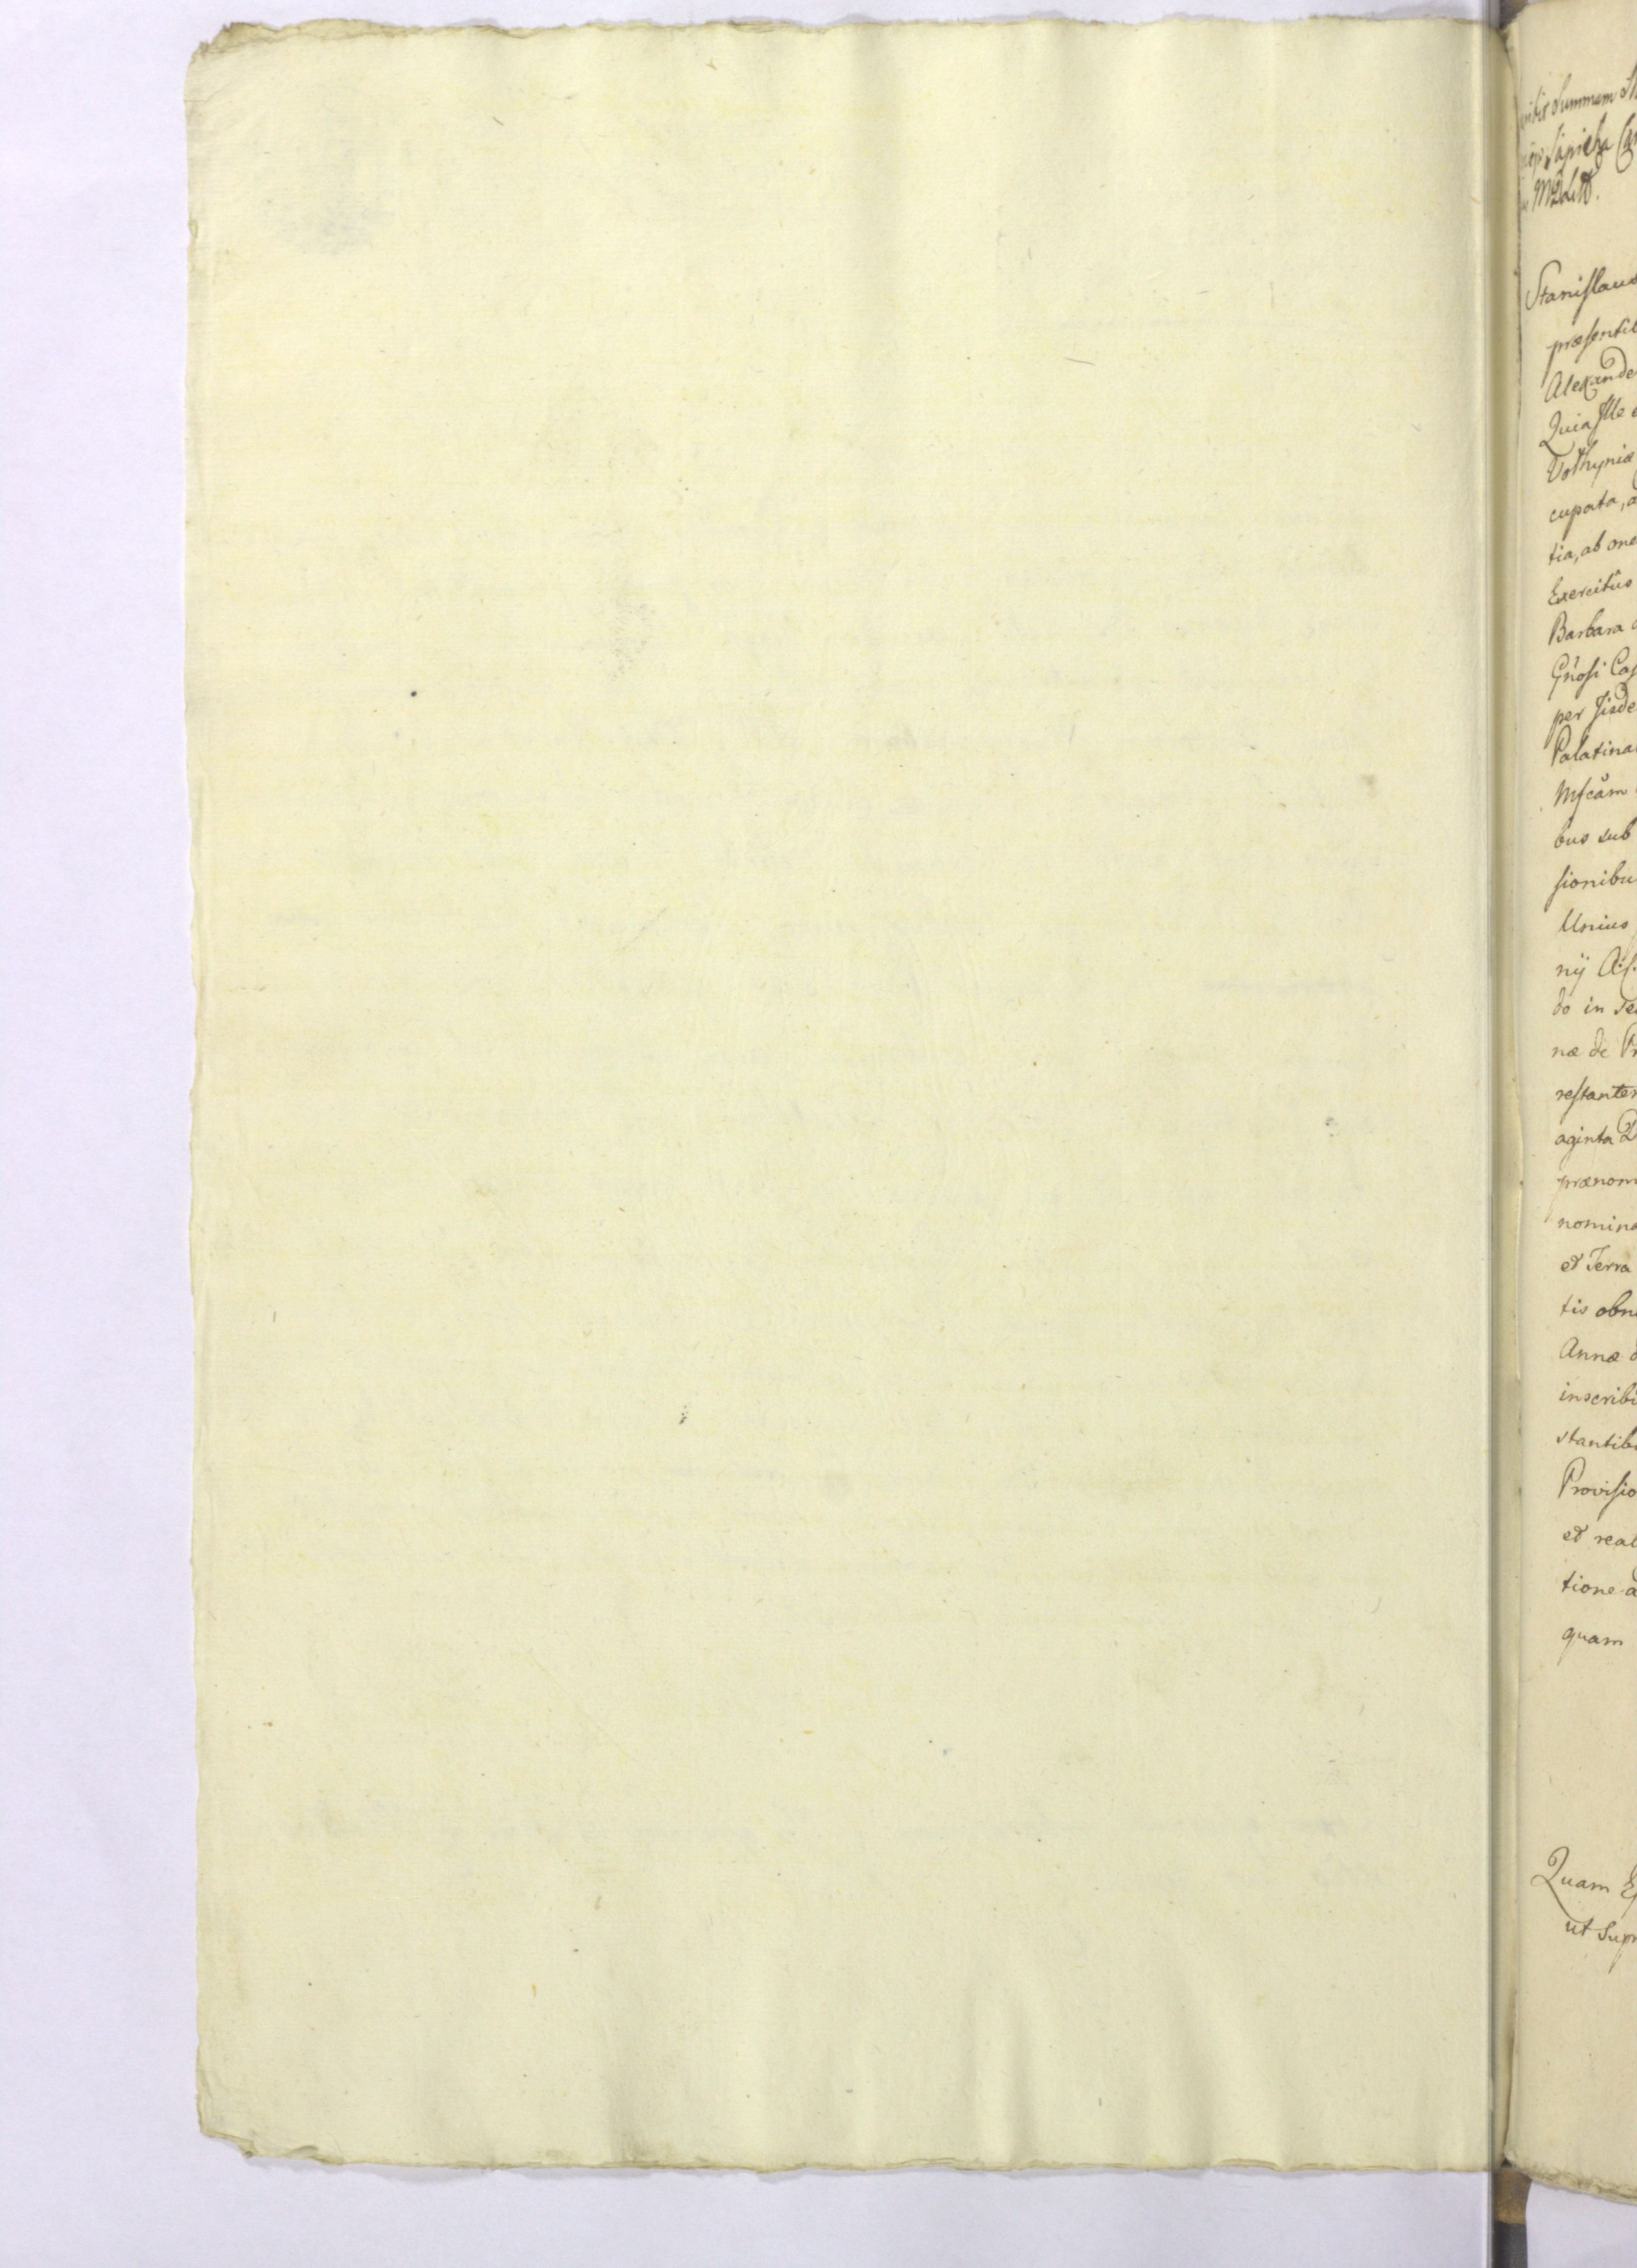 Summam
Sapieha
MDLitt.
Stanislaus
præsentib
Alexande
Quia Ille
Volhyniæ
cupata, a
tia, ab one
Exercitûs
Barbara
Gñosi Cas
per Eisde
Palatina
Mfcam
bus sub
sionibu
Unius
nij
do in Te
næ de Pr
restanter
aginta
prænom
nomina
et Terra
tis obno
Annæ d
inscribi
stantibu
Provisio
et real
tione a
quam
Quam
ut Supr